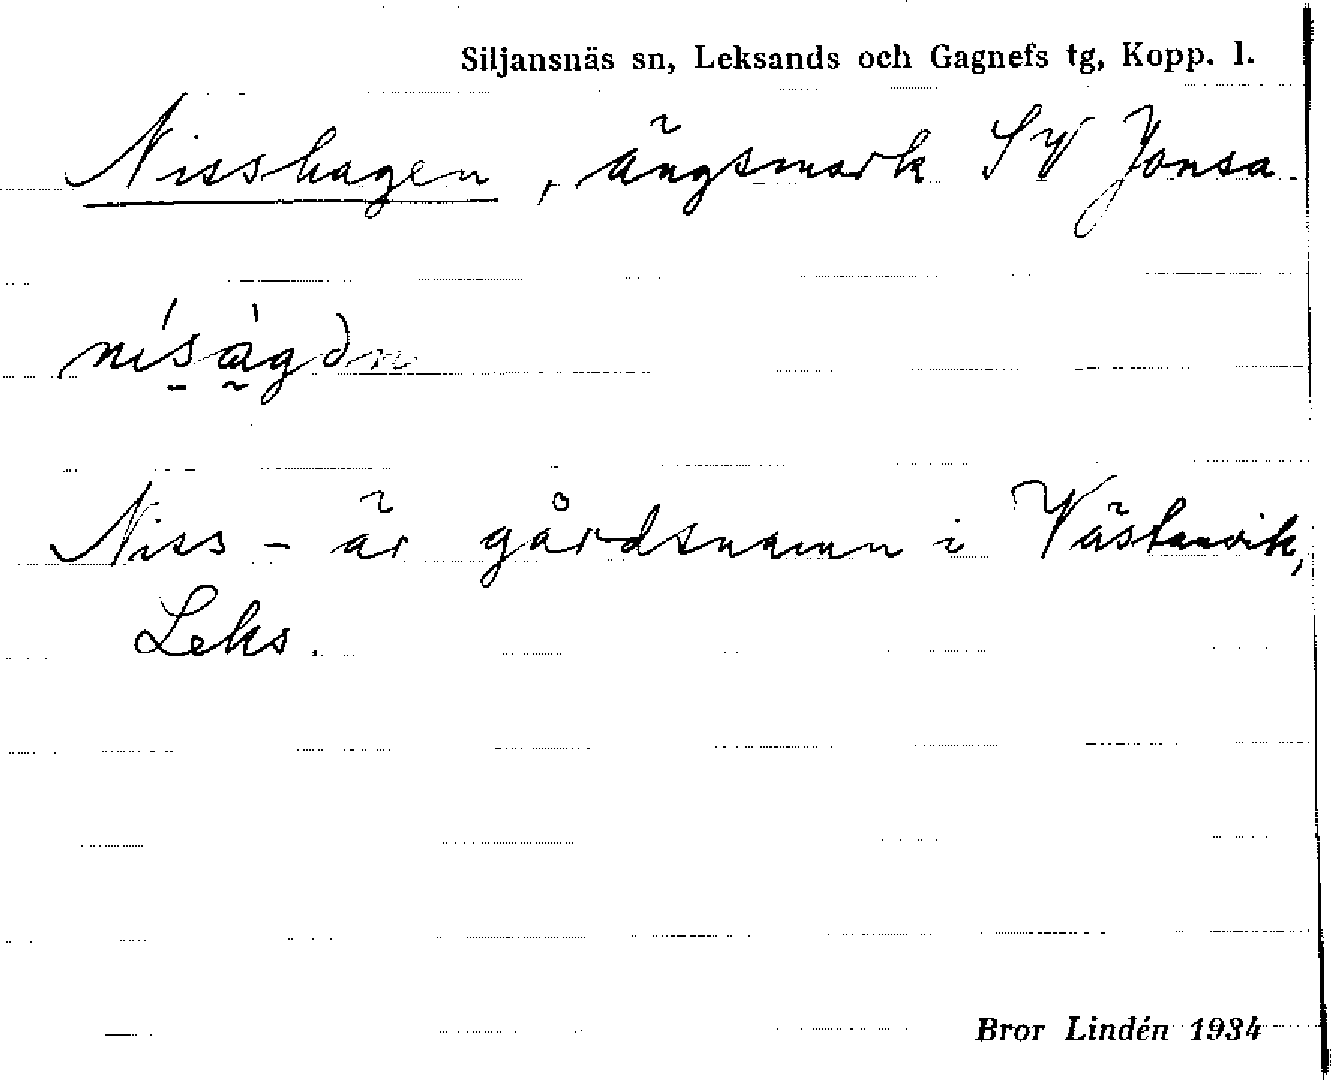 Siljansnäs sn, Leksands och Gagnefs tg, Kopp. l.
Nisshagen, ängsmark SV Jonsa.
Niss- är gårdsnamn i Västanvik,
Leks.
Bror Lindén 1934